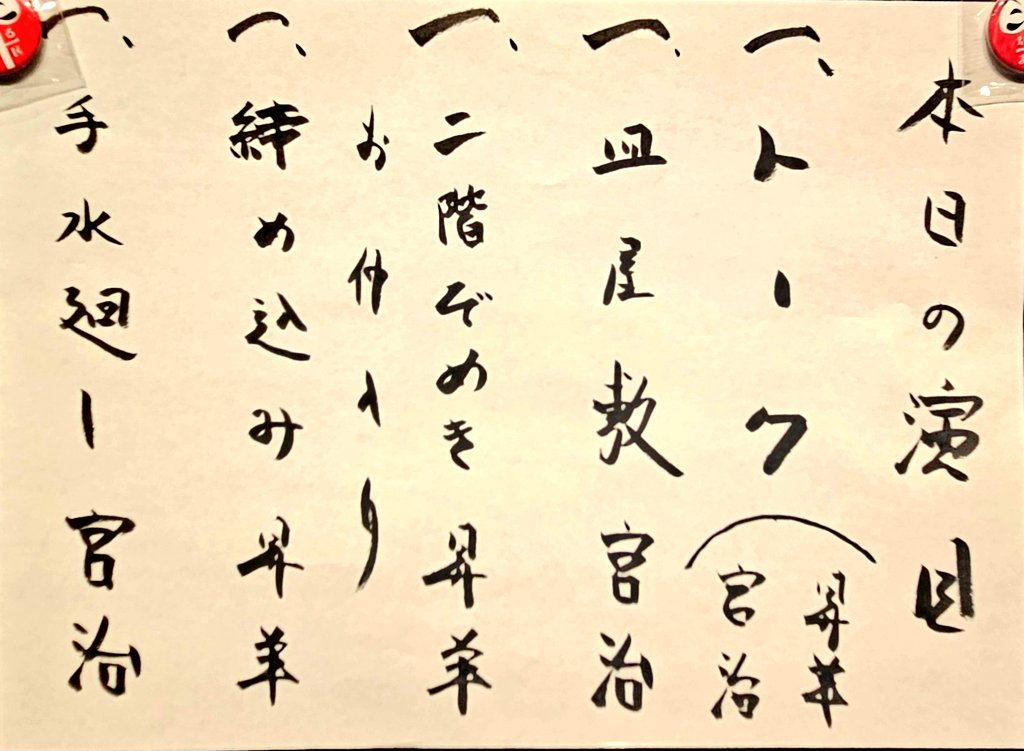 本日の演目
一、トーク(昇羊
宮治
一、皿屋敷 宮治
一、二階ぞめき 昇羊
お仲入り
一、締め込み 昇羊
一、手水廻し 宮治